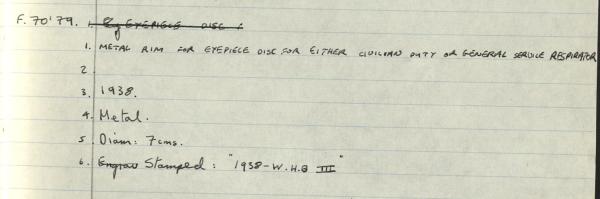 F.70'79. 1. Eg EYEPIECE DISC:
1. METAL RIM FOR EYEPIECE DISC FOR EITHER CIVILIAN DUTY OR GENERAL SERVICE RESPIRATOR
2
3. 1938.
4. Metal.
5 Diam: 7cms.
6. Engrav Stamped: "1938-W.H.B III"